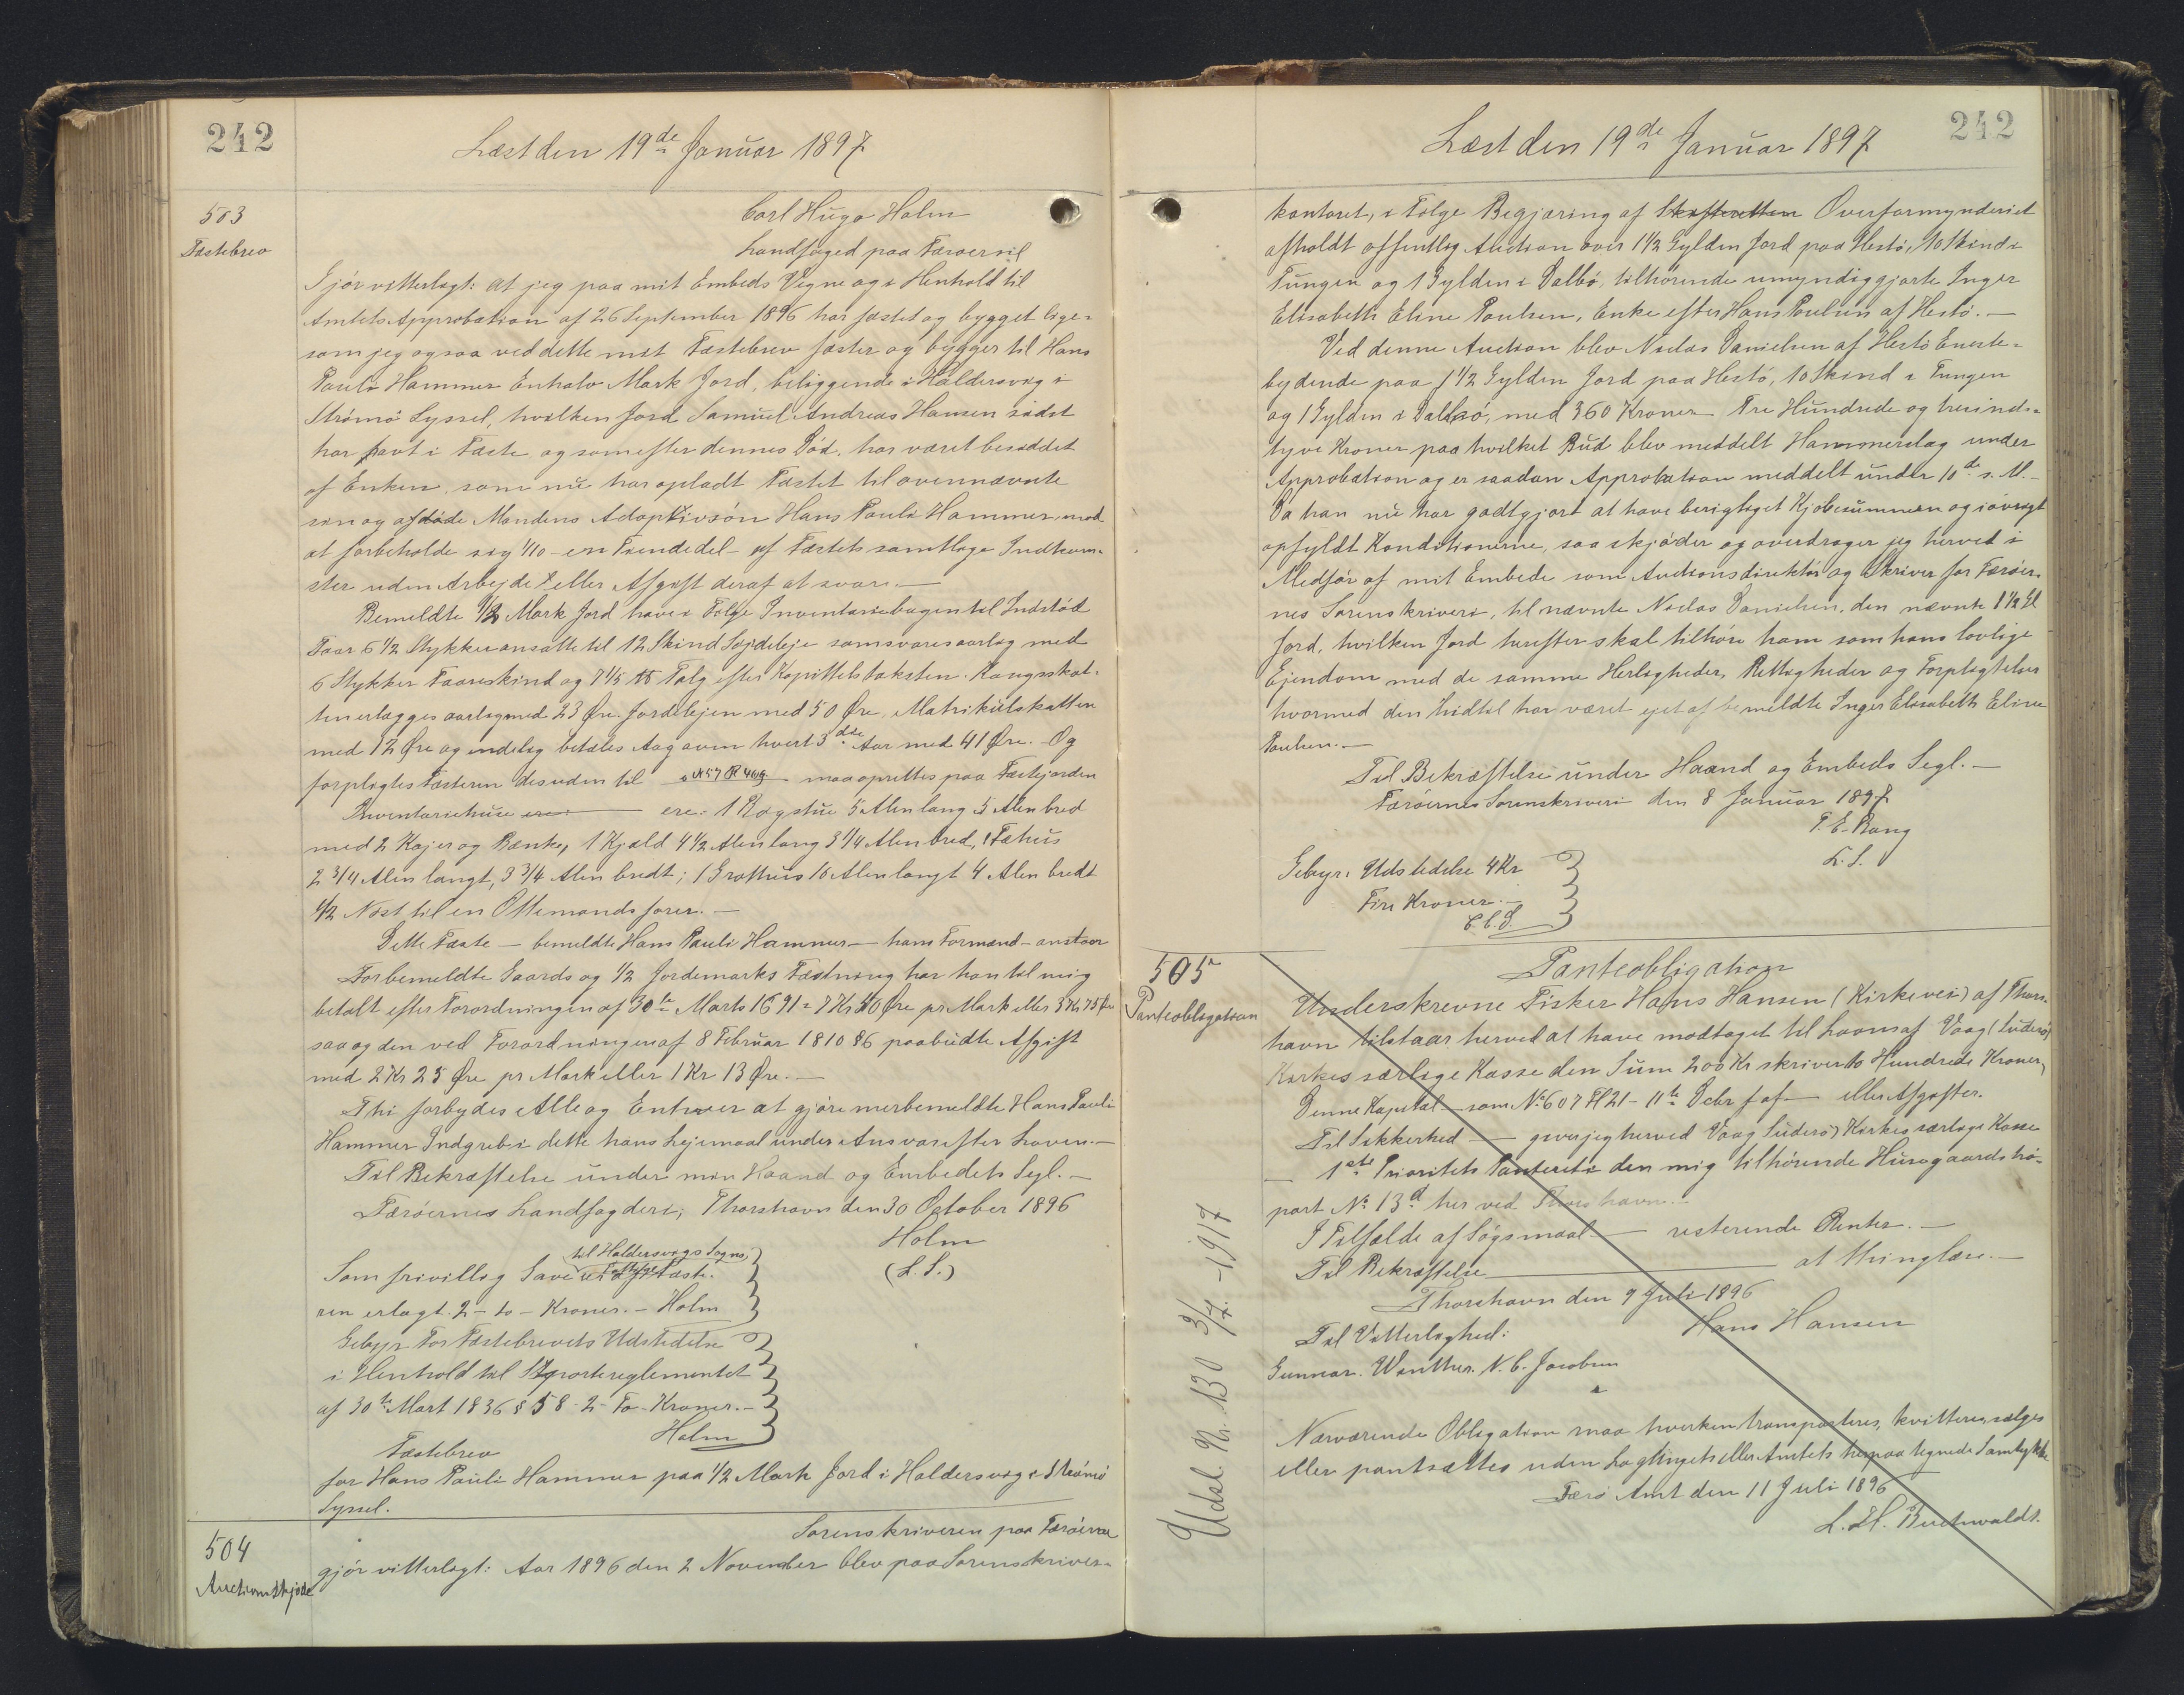 242
Læst den 19de Januar 1897
503
Fæstebrev
Carl Hugo Holm
Landfoged paa Færøerne
Gjör vitterligt: at jeg paa mit Embeds Vegne og i Henhold til
Amtets Approbation af 26 September 1896 har fæstet og bygget lige=
som jeg ogsaa ved dette mit Fæstebrev fæster og bygger til Hans
Pauli Hammer En halv Mark Jord, beliggende i Haldersvig i
Strömö Syssel, hvilken Jord Samuel Andreas Hansen sidst
har havt i Fæste og som efter dennes Död, har været besiddet
af Enken, som nu har opladt Fæstet til ovennævnte
sin og afdöde Mandens Adoptivsön Hans Pauli Hammer mod
at forbeholde sig 1/10 - en Tiendedel - af Fæstets samtlige Indkom=
ster uden Arbejde eller Afgift deraf at svare.—
Bemeldte 1/2 Mark Jord have i Fölge Inventariebogen til Indstöd
Faar 6 1/2 Stykker ansatte til 12 Skind Söjdeleje som svares aarlig med
6 Stykker Faareskind og 7 1/5 ℔ Talg efter Kapittelstaksten. Kongsskat=
ten erlægges aarlig med 23 Øre. Jordelejen med 50 Øre, Matrikulskatten
med 12 Øre og endelig betales Aagaven hvert 3die Aar med 41 Øre. Og
forpligtes Fæsteren desuden til maa oprettes paa Fæstejorden
Inventariehuse ere: ere: 1 Rogstue 5 Alen lang 5 Alen bred
med 2 Kojer og Bænke, 1 Kjæld 4 1/2 Alen lang 3 1/4 Alen bred, 1 Fæhus
2 3/4 Alen langt, 3 3/4 Alen bredt; 1 Grothus 10 Alen langt 4 Alen bredt
1/2 Nöst til en Ottemandsfarer.—
Dette Fæste — bemeldte Hans Pauli Hammer — hans Formænd - anstaar
For bemeldte Gaards og 1/2 Jordemarks Fæstning har han til mig
betalt efter Forordningen af 30te Marts 1691 = 7 Kr 50 Øre pr Mark eller 3 Kr 75 Øre
saa og den ved Forordningen af 8 Februar 1810 § 6 paabudte Afgift
med 2 Kr 25 Øre pr Mark eller 1 Kr 13 Øre.—
Thi forbydes Alle og Enhver at gjöre merbemeldte Hans Pauli
Hammer Indgreb i dette hans Lejemaal under Ansvar efter Loven.—
Til Bekræftelse under min Haand og Embedets Segl.—
Færöernes Landfogderi, Thorshavn den 30 October 1896
Holm
(L. S.)
til Haldersvigs Sogns
Som frivillig Gave Fæste=
ren erlagt 2 - to - Kroner.- Holm
Gebyr for Fæstebrevets Udstedelse
i Henhold til Sportelreglementet
af 30te Mart 1836 § 58 - 2 - To - Kroner.—
Holm
Fæstebrev
for Hans Pauli Hammer paa 1/2 Mark Jord i Haldersvig i Strömö
Syssel.
504
Auctionsskjöde
Sorenskriveren paa Færöerne
gjör vitterligt: Aar 1896 den 2 November blev paa Sorenskriver=
242
Læst den 19de Januar 1897
kontoret, i Fölge Begjæring af Skifteretten Overformynderiet
afholdt offentlig Auction over 1 1/2 Gylden Jord paa Hestö, 10 Skind i
Tungen og 1 Gylden i Dalbö, tilhörende umyndiggjorte Inger
Elisabeth Eline Poulsen, Enke efter Hans Poulsen af Hestö.—
Ved denne Auction blev Niclas Danielsen af Hestö Eneste=
bydende paa 1 1/2 Gylden Jord paa Hestö, 10 Skind i Tungen
og 1 Gylden i Dalbö, med 360 Kroner Tre Hundrede og tresinds=
tyve Kroner paa hvilket Bud blev meddelt Hammerslag under
Approbation og er saadan Approbation meddelt under 10de s. M.—
Da han nu har godtgjort at have berigtiget Kjöbesummen og iövrigt
opfyldt Konditionerne, saa skjöder og overdrager jeg herved i
Medför af mit Embede som Auctionsdirektör og Skriver for Færöer=
nes Sorenskriveri, til nævnte Niclas Danielsen, den nævnte 1 1/2 Gl
Jord, hvilken Jord herefter skal tilhöre ham som hans lovlige
Ejendom med de samme Herligheder, Rettigheder og Forpligtelser
hvormed den hidtil har været ejet af bemeldte Inger Elisabeth Eline
Poulsen.—
Til Bekræftelse under Haand og Embeds Segl.—
Færöernes Sorenskriveri den 8 Januar 1897
T. E. Bang
L. S.
Gebyr: Udstedelse 4 Kr
Fire Kroner.—
505
Panteobligation
Panteobligation
Underskrevne Fisker Hans Hansen (Kirkevei) af Thors=
havn tilstaar herved at have modtaget til Laans af Vaag (Suderö)
Kirkes særlige Kasse den Sum 200 Kr skriver to Hundrede Kroner,
Denne Kapital — som No 607 Fl 21 - 11te Debr f. af — eller Afgifter.
Til Sikkerhed — giver jeg herved Vaag Suderö) Kirkes særlige Kasse
— 1ste Prioritets Panteret i den mig tilhörende Husegaards hö=
part No 13d her ved Thorshavn.—
I Tilfælde af Sögsmaal — resterende Renter.—
Til Bekræftelse — at thinglæse.—
Thorshavn den 9 Juli 1896
Hans Hansen
Til Vitterlighed:
Gunnar. Winther. N. C. Jacobsen
Nærværende Obligation maa hverken transporteres, kvitteres, sælges
eller pantsættes uden Lagtingets eller Amtets herpaa tegnede Samtykke
Færö Amt den 11 Juli 1896
L. H. Buchwaldt.
Udsl. Nr. 130 3/4 - 1917